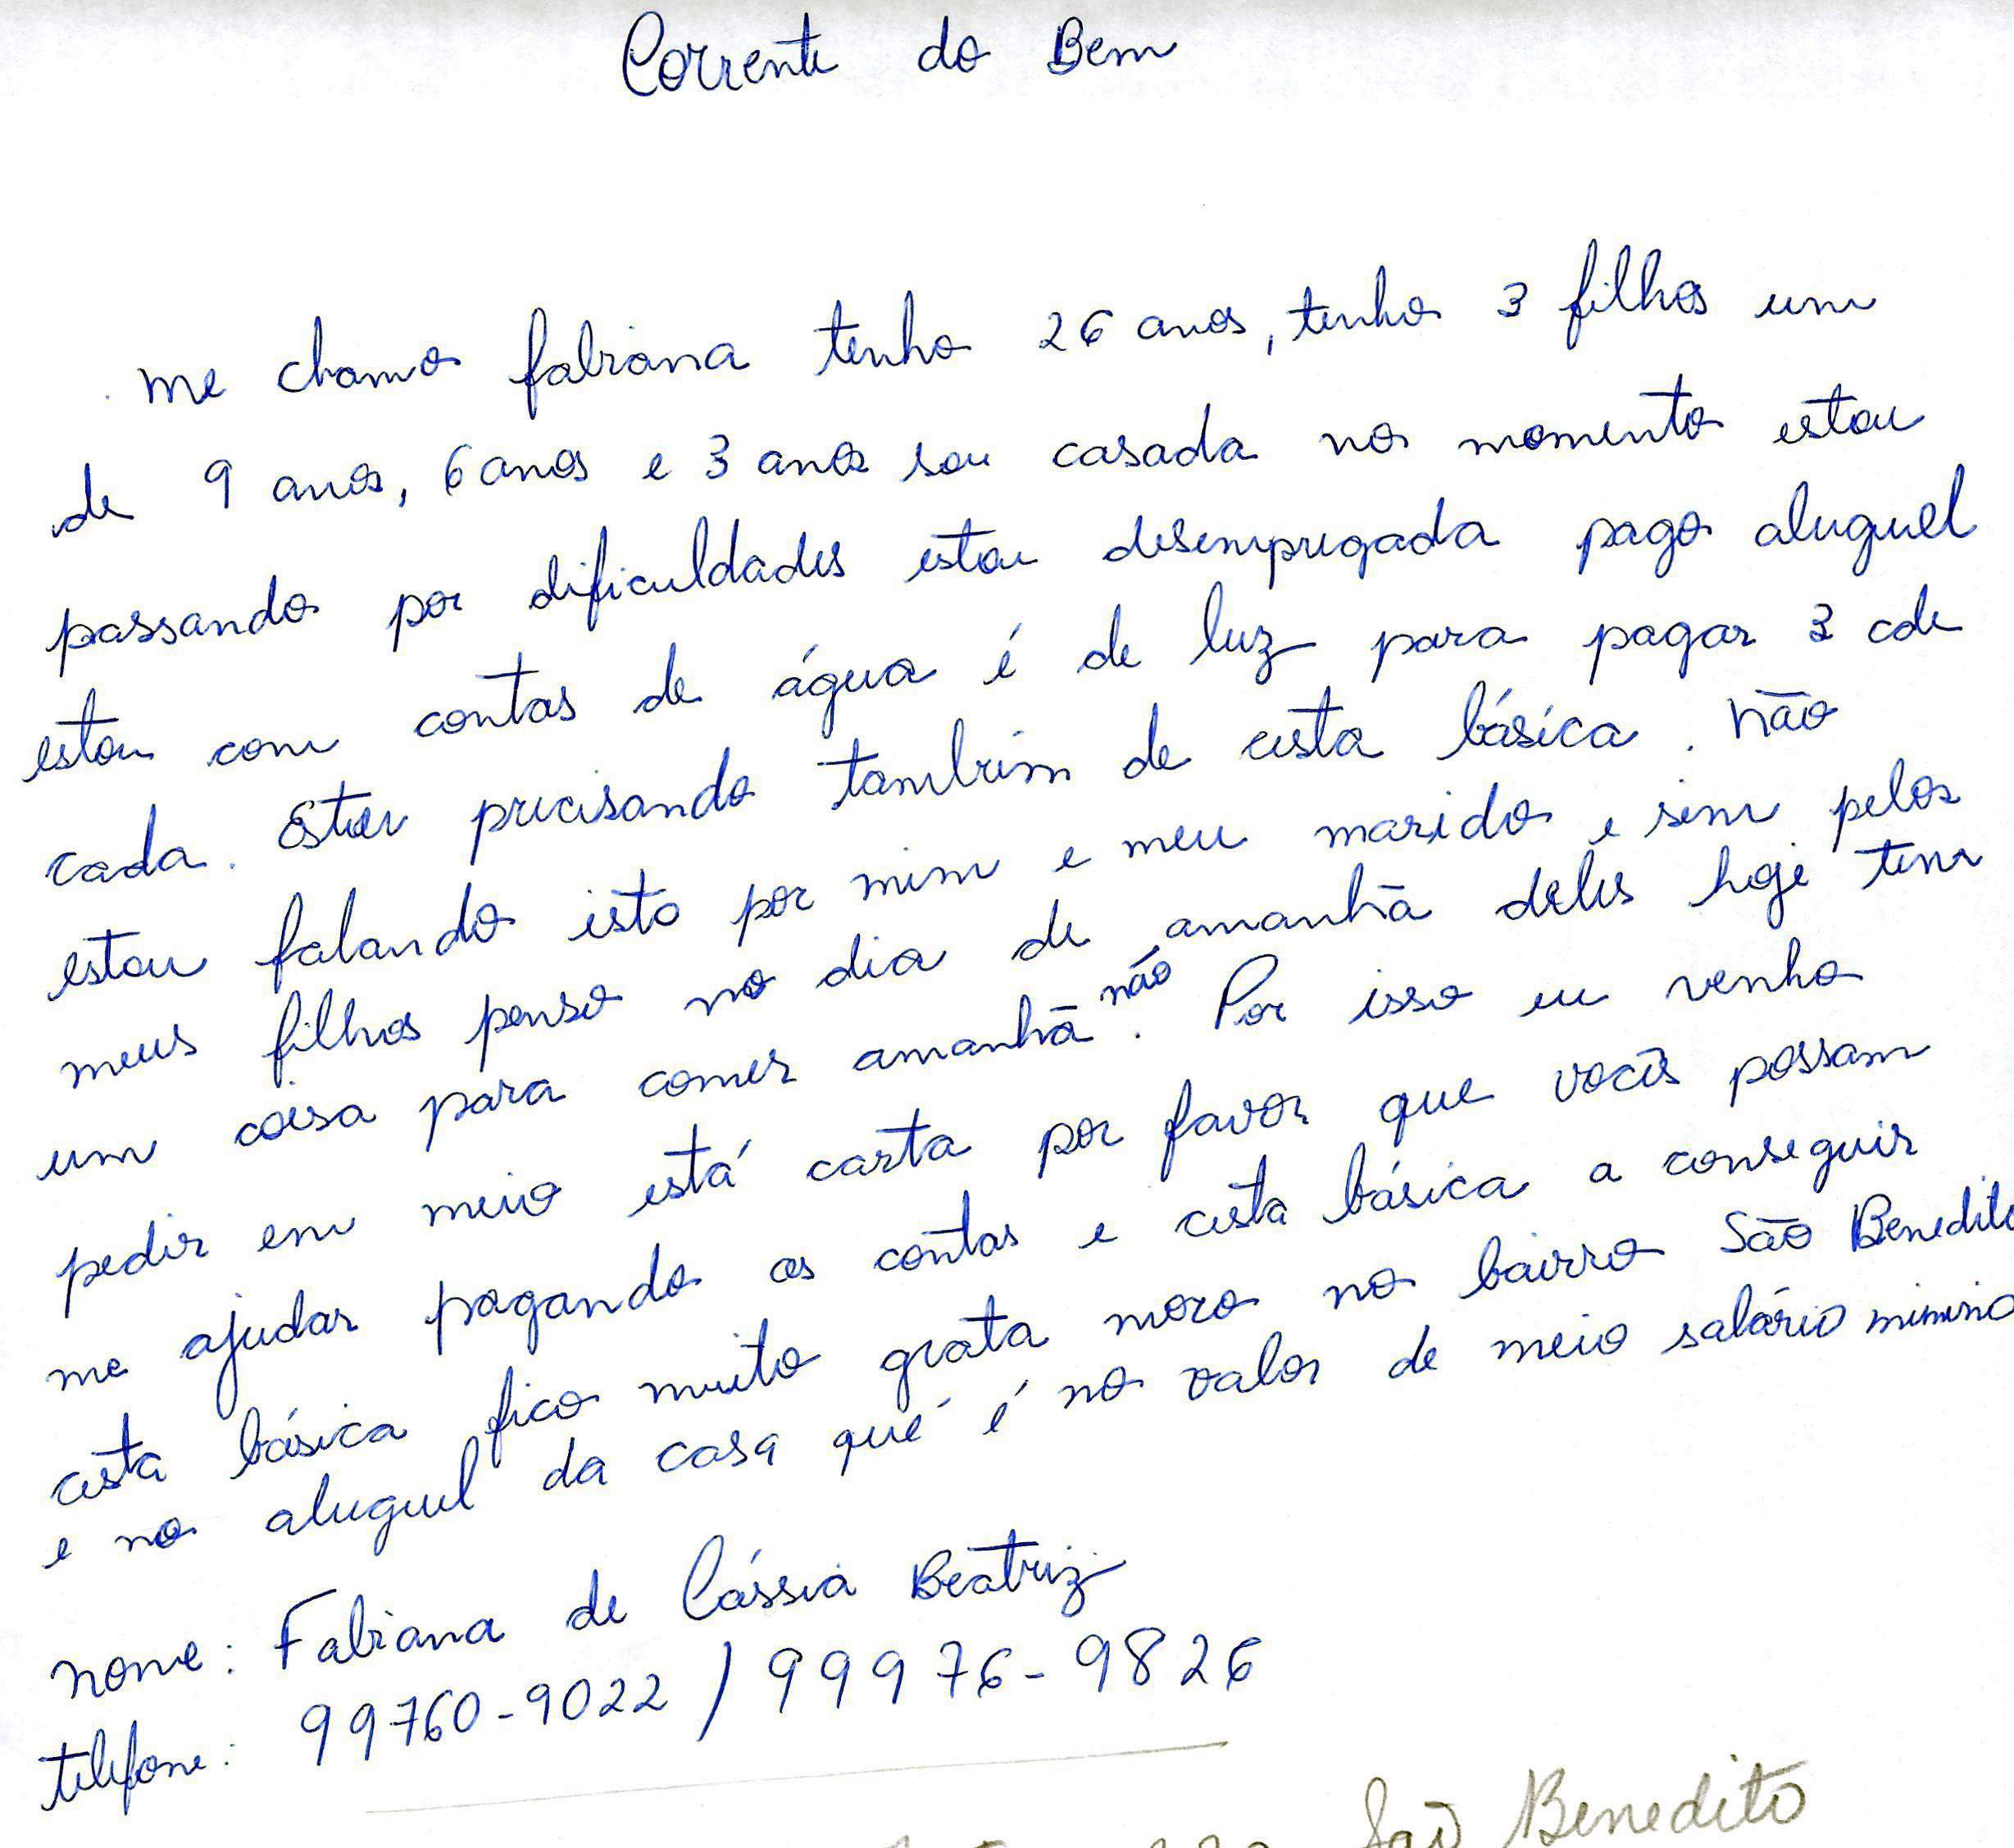 Corrente do Bem
Me chamo fabiana tenho 26 anos, tenho 3 filhos um
de 9 anos, 6 anos e 3 anos sou casada no momento estou
passando por dificuldades estou desempregada pago aluguel
estou com contas de água é de luz para pagar 3 cde
cada. Estou precisando tambrim de cesta básica. Não
estou falando isto por mim e meu marido e sim pelos
meus filhos penso no dia de amanhã deles hoje tem
um coisa para comer amanhã não. Por isso eu venho
pedir em meio está carta por favor que vocês possam
me ajudar pagando as contas e cesta básica a conseguir
cesta básica fico muito grata moro no bairro São Benedito
e no aluguel da casa qué é no valor de meio salário minimo
nome: Fabiana de Cássia Beatriz
telefone: 99760-9022 / 99976-9826
São Benedito